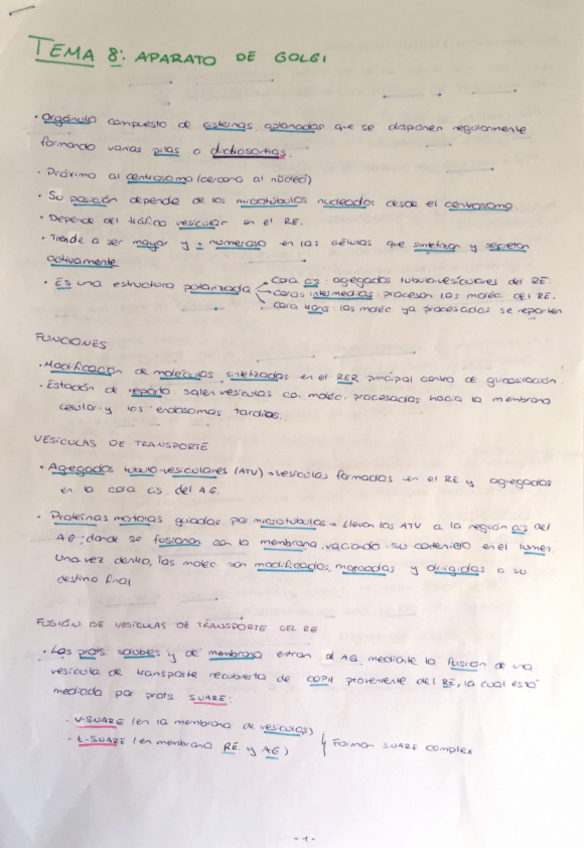 TEMA 8: APARATO DE GOLGI
· Orgánulo compuesto de cisternas aplanadas que se disponen regularmente
formando varias pilas o dictiosomas.
· Próximo al centrosoma (cercano al núcleo)
· Su posición depende de los microtúbulos nucleados desde el centrosoma.
· Depende del tráfico vesicular en el RE.
· Tiende a ser mayor y + numeroso en las células que sintetizan y secretan
activamente
· Es una estructura polarizada
cara cis: agregados tubulo-vesiculares del RE.
caras intermedias: procesan las moléc. del RE.
cara trans: las moléc ya procesadas se reparten
FUNCIONES
· Modificación de moléculas sintetizadas en el RER principal centro de glucosilación.
· Estación de reparto: salen vesículas con moléc. procesadas hacia la membrana
celular y los endosomas tardíos.
VESÍCULAS DE TRANSPORTE
· Agregados tubulo-vesiculares (ATV) → vesículas formadas en el RE y agregadas
en la cara cis del AG.
· Proteínas motoras guiadas por microtúbulos → llevan los ATV a la región cis del
AG; donde se fusionan con la membrana, vaciando su contenido en el lumen.
Una vez dentro, las moléc. son modificadas, marcadas y dirigidas a su
destino final
FUSIÓN DE VESÍCULAS DE TRANSPORTE DEL RE
· Las prots. solubles y de membrana entran al AG mediante la fusión de una
vesícula de transporte recubierta de COPII proveniente del RE, la cual está
mediada por prots. SNARE:
- V-SNARE (en la membrana de vesículas)
- t-SNARE (en membrana RE y AG)
Forman SNARE complex
-1-